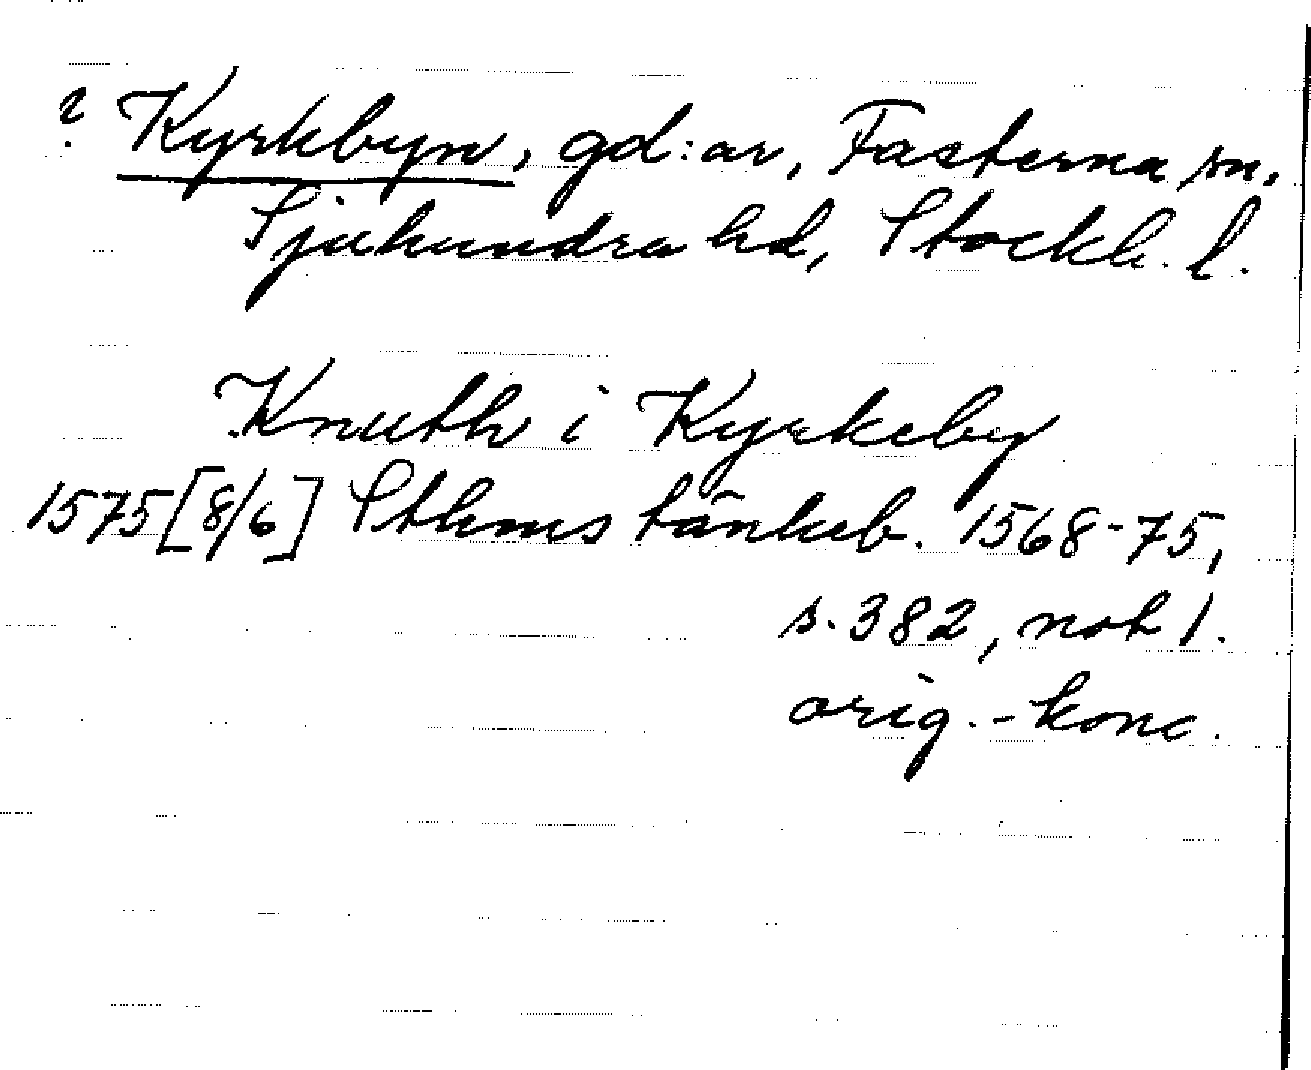 ? Kyrkbyn, gd:ar, Fasterna sn,
Sjuhundra hd, Stockh. l.
Knuth i Kyrkeby
1575 [8/6] Sthms tänkeb. 1568-75,
s. 382, not 1.
orig.-konc.